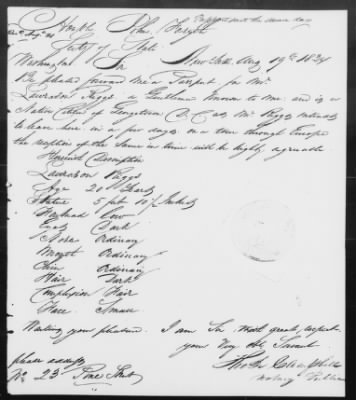 Passport sent the same day
John Forsyth
Washington Sir New York Aug 19th 1834
Be pleased forward me a Passport for Mr
Riggs a Gentleman known to me and is a
Native Citizen of Georgetown D. C. Mr Riggs intends
to leave here in a few days on a tour through Europe
the reception of the same in time will be highly agreeable
Herewith Description
Riggs
Age 20 Years
Stature 5 feet 10 1/2 Inches
Forehead Low
Eyes Dark
Nose Ordinary
Mouth Ordinary
Chin Ordinary
Hair Dark
Complexion Fair
Face Small
Waiting your pleasure. I am Sir with great respect
your Very Obt Servant
please address
No 23 Pine Street Notary Public